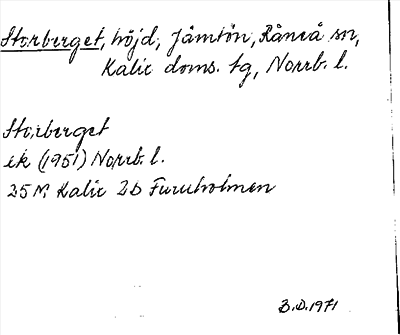 Storberget, höjd, Jämtön, Råneå sn,
Kalix doms. tg, Norrb. l.
Storberget
ek (1951) Norrb. l.
25 M Kalix 2b Furuholmen
B.D. 1971